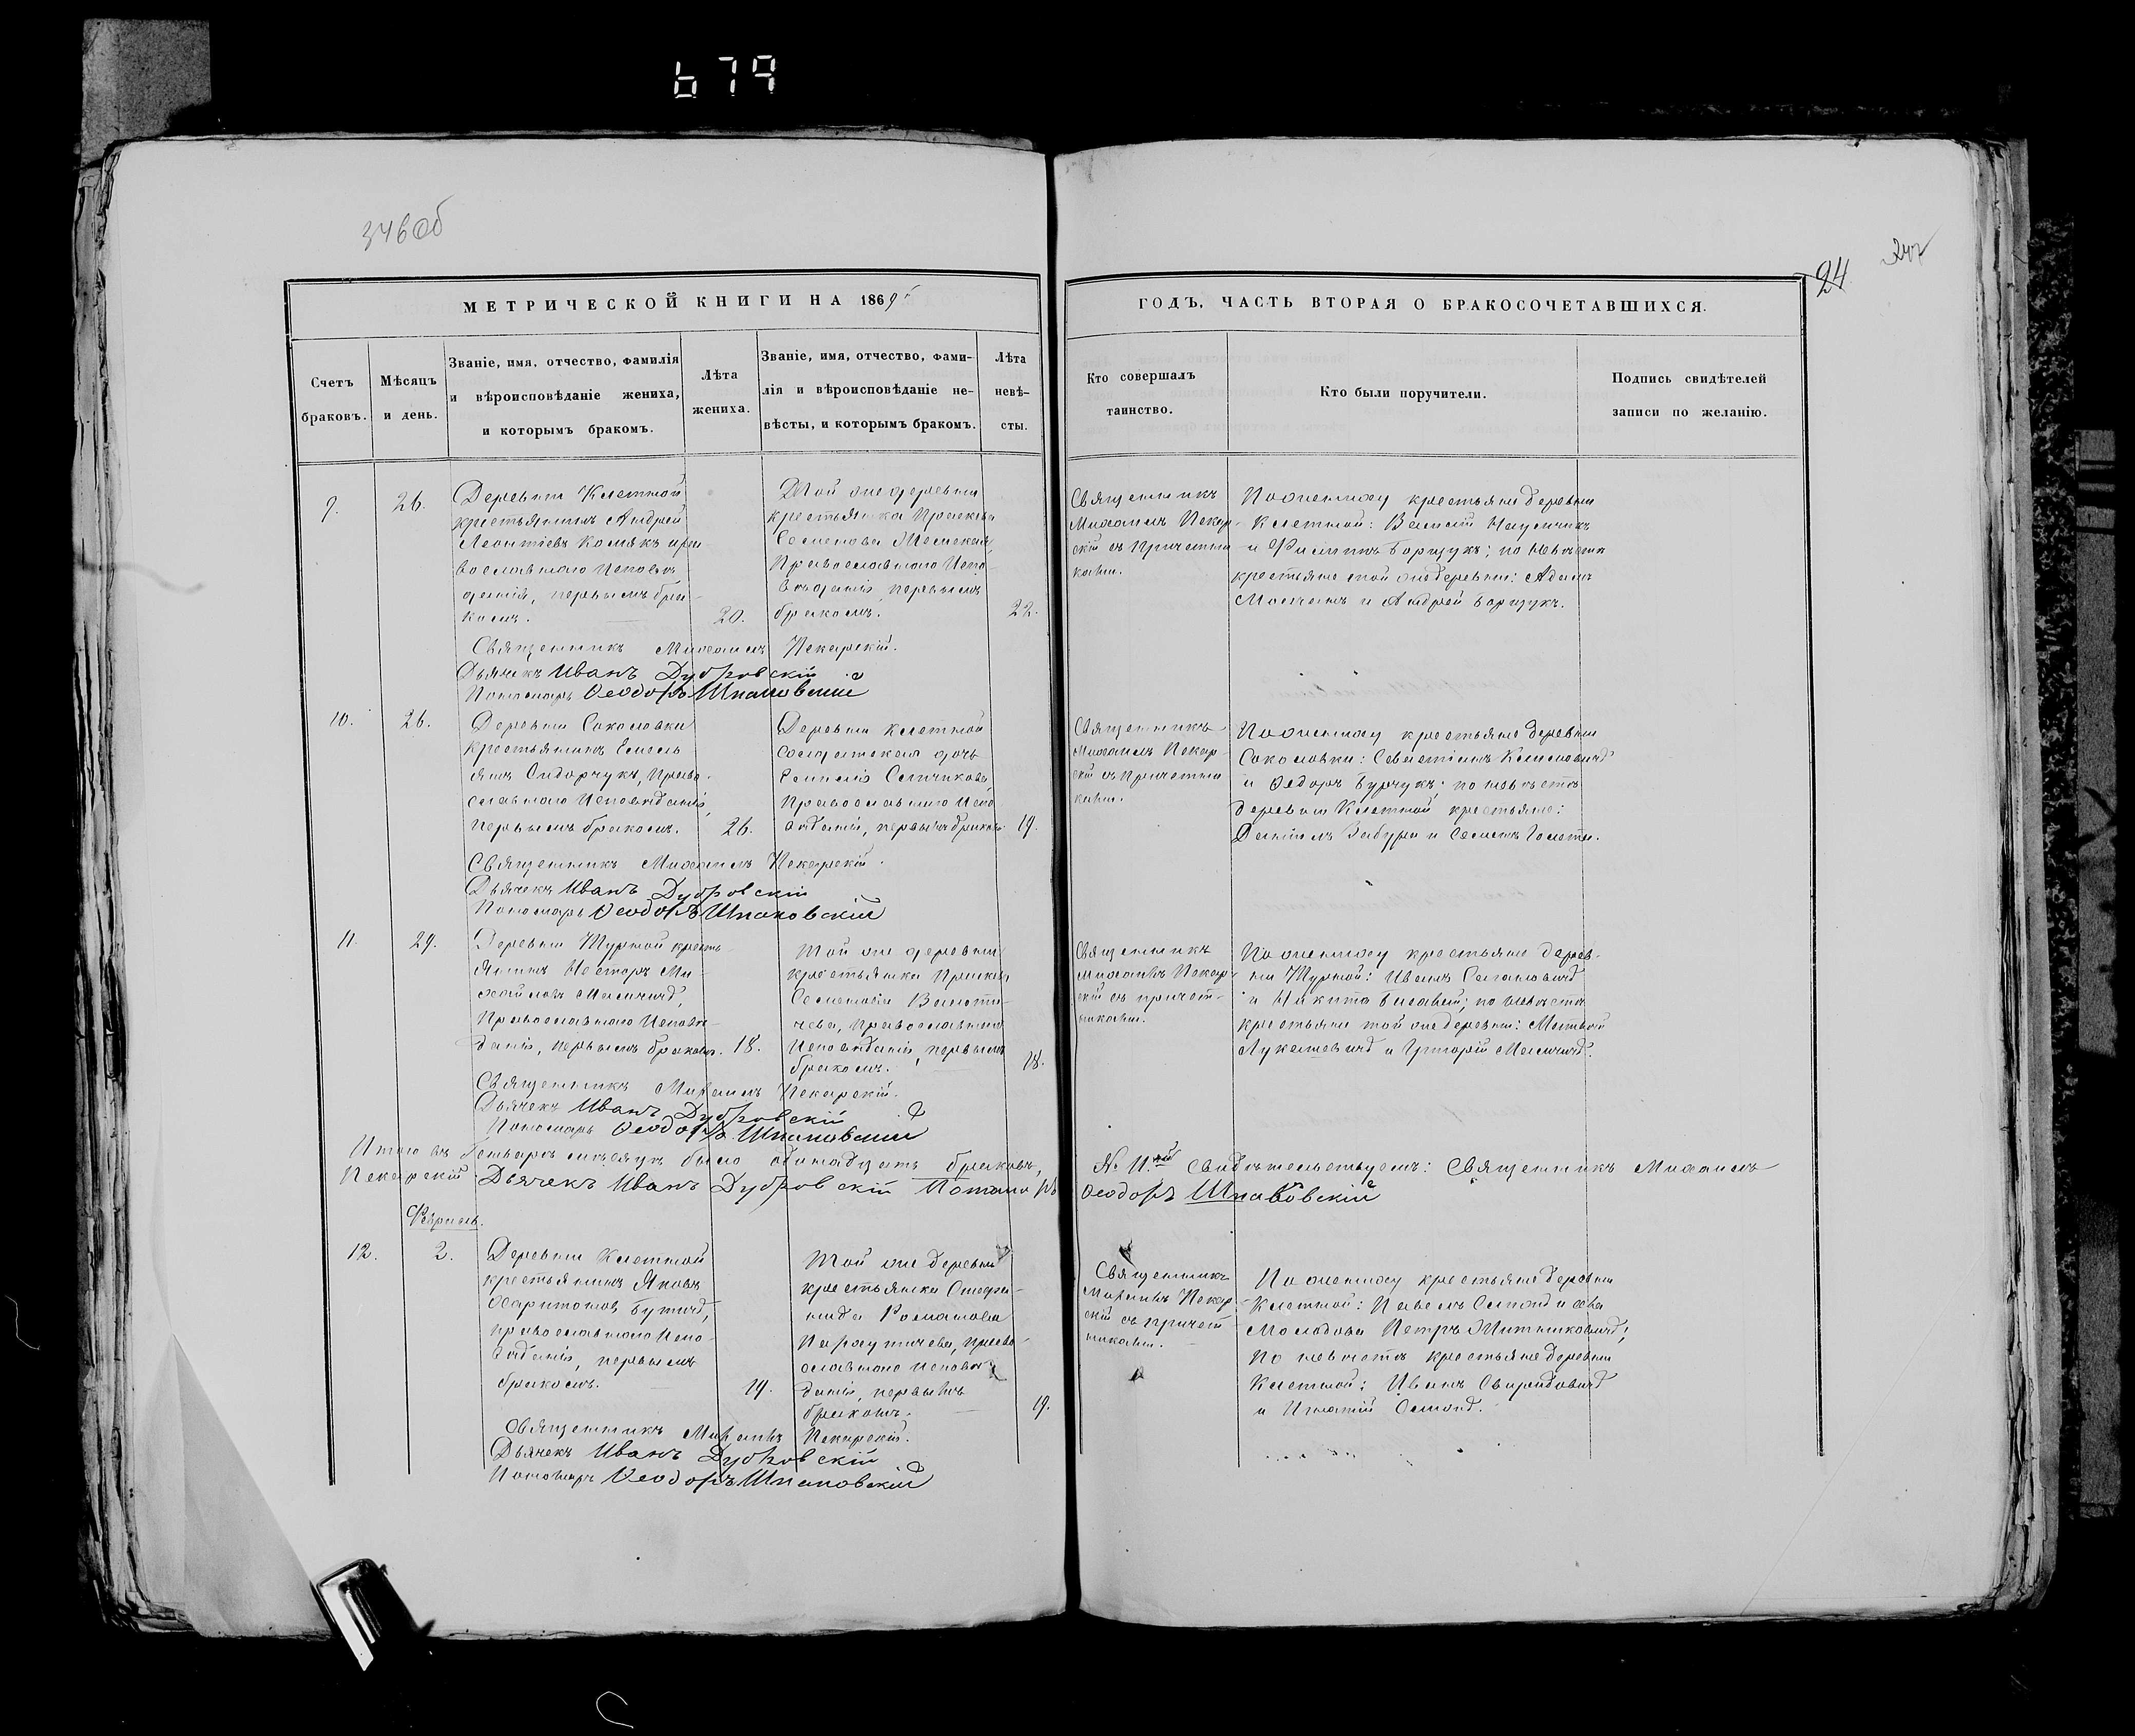 679
346 об
24
МЕТРИЧЕСКОЙ КНИГИ НА 1869
ГОДЪ, ЧАСТЬ ВТОРАЯ О БРАКОСОЧЕТАВШИХСЯ.
Счетъ
браковъ.
Мѣсяцъ
и день.
Званіе, имя, отчество, фамилія
и вѣроисповѣданіе жениха,
и которымъ бракомъ.
Лѣта
жениха.
Званіе, имя, отчество, фами-
лія и вѣроисповѣданіе не-
вѣсты, и которымъ бракомъ.
Лѣта
невѣ-
сты.
Кто совершалъ
таинство.
Кто были поручители.
Подпись свидѣтелей
записи по желанію.
9.
26.
Деревни Клетной
крестьянинъ Андрей
Леонтіевъ
вославнаго Исповѣ
данія, первымъ бра-
комъ.
20.
Той же деревни
крестьянка
Семенова
Православнаго Испо-
вѣданія, первымъ
бракомъ.
22.
Священникъ
Михаилъ Пекар-
скій съ Причетни
ками.
По женихѣ крестьяне деревни
Клетной:
и Филиппъ Борщукъ; по невѣстѣ
крестьяне той же деревни: Адамъ
и Андрей Борщукъ.
Священникъ Михаилъ Пекарскій.
Дьячекъ Иванъ Дубровскій
Пономарь Ѳеодоръ Шпаковскій
10.
26.
Деревни Соколовки
крестьянинъ Емель
янъ Сидорчукъ, Право-
славнаго Исповѣданія,
первымъ бракомъ.
26.
Деревни Клетной
солдатская дочь
Православнаго Испо
вѣданія, первымъ бракомъ
19.
Священникъ
Михаилъ Пекар-
скій съ Причетни
ками.
По женихѣ крестьяне деревни
Соколовки:
и Ѳедоръ Бурчукъ; по невѣстѣ
деревни Клетной крестьяне:
Даніилъ и Семенъ
Священникъ Михаилъ Пекарскій.
Дьячекъ Иванъ Дубровскій
Пономарь Ѳеодоръ Шпаковскій
11.
29.
Деревни Турной кресть-
янинъ Несторъ Ми-
хайловъ
Православнаго Исповѣ-
данія, первымъ бракомъ.
18.
Той же деревни
крестьянка
Семенова
Православнаго
Исповѣданія, первымъ
бракомъ.
18.
Священникъ
Михаилъ Пекар-
скій съ причет-
никами.
По женихѣ крестьяне дерев-
ни Турной: Иванъ
и Никита; по невѣстѣ
крестьяне той же деревни: Матвей
Лукашевичъ и Григорій
Священникъ Михаилъ Пекарскій.
Дьячекъ Иванъ Дубровскій
Пономарь Ѳеодоръ Шпаковскій
Итого въ Генварѣ мѣсяцѣ было одинадцать браковъ,
№ 11.й Свидѣтельствуемъ: Священникъ Михаилъ
Пекарскій Дьячекъ Иванъ Дубровскій Пономарь
Ѳеодоръ Шпаковскій
Февраль.
12.
2.
Деревни Клетной
крестьянинъ Яковъ
Харитоновъ
православнаго Испо-
вѣданія, первымъ
бракомъ.
19.
Той же деревни
крестьянка Степа-
нида Романова
право-
славнаго исповѣ
данія, первымъ
бракомъ.
19.
Священникъ
Михаилъ Пекар-
скій съ причет-
никами.
По женихѣ крестьяне деревни
Клетной: Павелъ
Петръ
По невѣстѣ крестьяне деревни
Клетной: Иванъ Свиридовичъ
и Игнатій
Священникъ Михаилъ Пекарскій.
Дьячекъ Иванъ Дубровскій
Пономарь Ѳеодоръ Шпаковскій